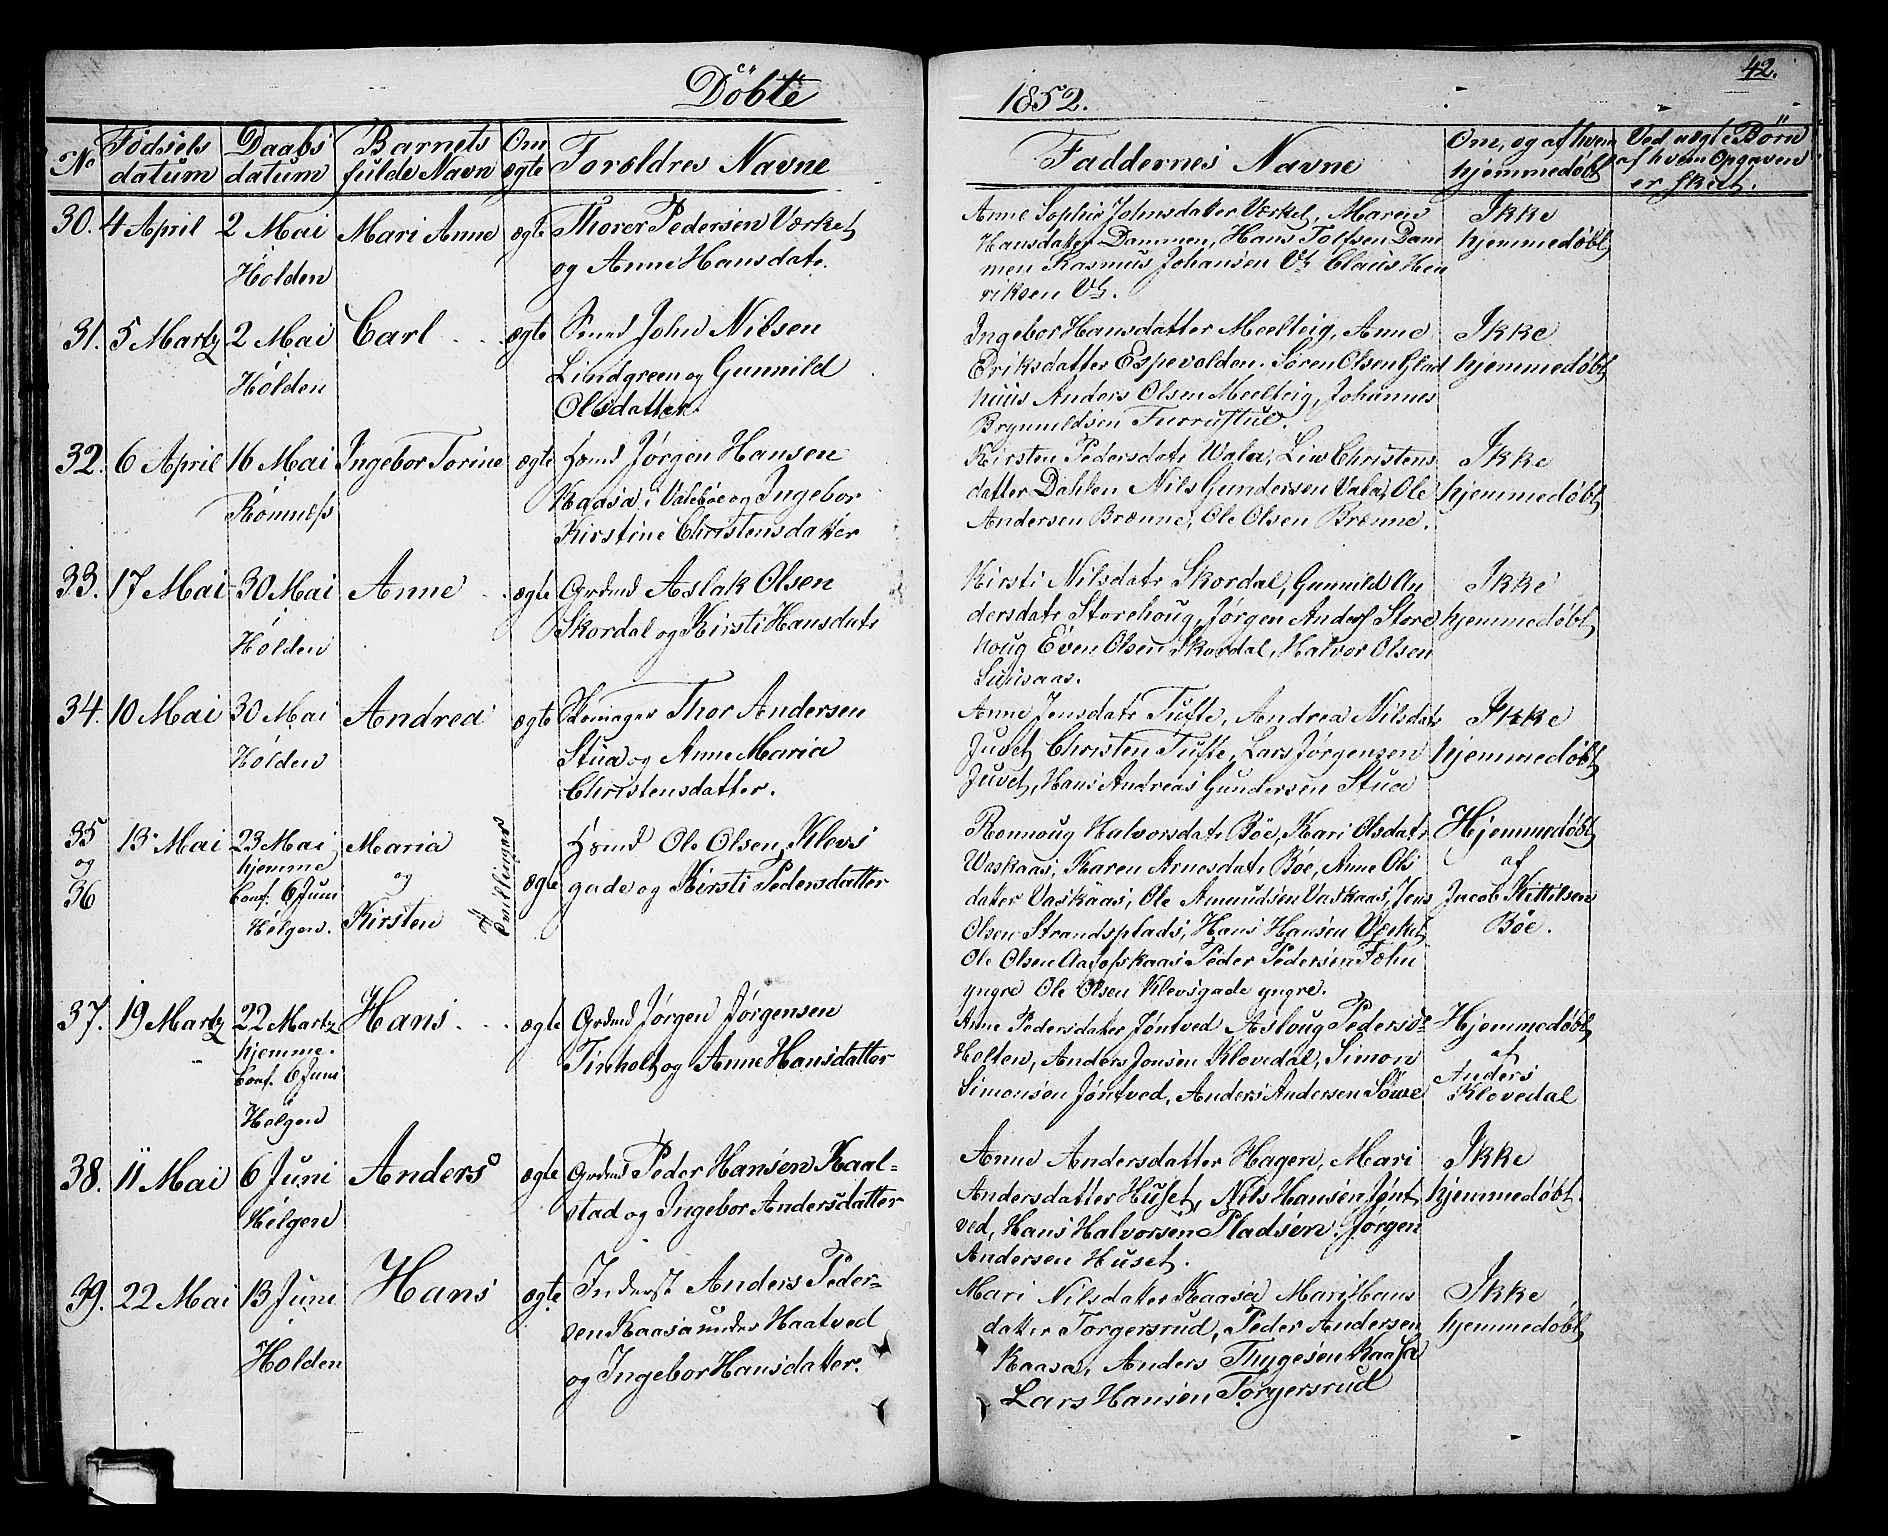 Döbte
1852.
42.
No
Födsels datum
Daabs datum
Barnets fulde Navn
Om ægte
Forældres Navne
Faddernes Navne
Om, og af hvem hjemmedøbt
Ved uægte Børn af hvem Opgaven er skeet.
30. 4 April 2 Mai Holden Mari Anne ægte
Thorer Pedersen Værket
og Anne Hansdatr.
Anne Sophie Johnsdatter Værket, Maren
Hansdatter Dammen, Hans Tolfsen Dam
men Rasmus Johansen Vk Claus Hen
riksen Vk.
Ikke
hjemmedøbt
31. 5 Martz 2 Mai Holden Carl ægte
Smed John Nilsen
Lindgreen og Gunnild
Olesdatter.
Ingebor Hansdatter Meelteig, Anne
Eriksdatter Espevolden. Søren Olsen Glad
huus Anders Olsen Meelteig, Johannes
Brynnildsen Furrustul.
Ikke
hjemmedøbt
32. 6 April 16 Mai Romnæss Ingebor Torine ægte
Hsmd Jørgen Hansen
Kaasa i Valebøe og Ingebor
Kirstine Christensdatter
Kirsten Pedersdatr Vala, Liv Christens
datter Dahlen Nils Gundersen Vala, Ole
Andersen Brænne, Ole Olsen Brænne.
Ikke
hjemmedøbt
33. 17 Mai 30 Mai Holden Anne ægte
Grdmd Aslak Olsen
Skordal og Kirsti Hansdatr
Kirsti Nilsdatr Skordal, Gunnild An
dersdatr Storehoug, Jørgen Anders Store
houg Even Olsen Skordal, Halvor Olsen
Ikke
hjemmedøbt
34. 10 Mai 30 Mai Holden Andrea ægte
Skomager Thor Andersen
Stua og Anne Maria
Christensdatter.
Anne Jensdatr Tufte, Andrea Nilsdatr
Juvet Christen Tufte, Lars Jørgensen
Juvet, Hans Andreas Gundersen Stua
Ikke
hjemmedøbt
35 og 36 13 Mai 23 Mai hjemme Conf. 6 Juni Helgen. Maria og Kirsten Tvillinger ægte
Hsmd Ole Olsen Klevs
gade og Kirsti Pedersdatter
Ronnoug Halvorsdatr Bøe, Kari Olsdatr
Vaskaas, Karen Arnesdatr Bøe, Anne Ols
datter Vaskaas, Ole Amundsen Vaskaas, Jens
Olsen Strandsplads, Hans Hansen Værket
Ole Olsen Aarofskaas Peder Pedersen Fæhn
yngre Ole Olsen Klevsgade yngre.
Hjemmedøbt
af
Jacob Kittilsen
Bøe.
37. 19 Martz 22 Martz hjemme. Conf. 6 Juni Helgen Hans ægte
Grdmd Jørgen Jørgensen
Tinholt og Anne Hansdatter
Anne Pedersdatter Jøntved Asloug Pedersd
Holten, Anders Jonsen Klovedal, Simon
Simonsen Jøntved, Anders Andersen Sowe
Hjemmedøbt
af
Anders
Klovedal
38. 11 Mai 6 Juni Helgen Anders ægte
Grdmd Peder Hansen Kaal-
stad og Ingebor Andersdatter
Anne Andersdatter Hagen, Mari
Andersdatter Huset, Nils Hansen Jønt
ved, Hans Halvorsen Pladsen, Jørgen
Andersen Huset.
Ikke
hjemmedøbt.
39. 22 Mai 13 Juni Holden Hans ægte
Inderst Anders Peder-
sen Kaasa under Haatved
og Ingebor Hansdatter.
Mari Nilsdatter Kaasa Mari Hans
datter Torgersrud, Peder Andersen
Kaasa, Anders Thygesen Kaasa
Lars Hansen Torgersrud
Ikke
hjemmedøbt